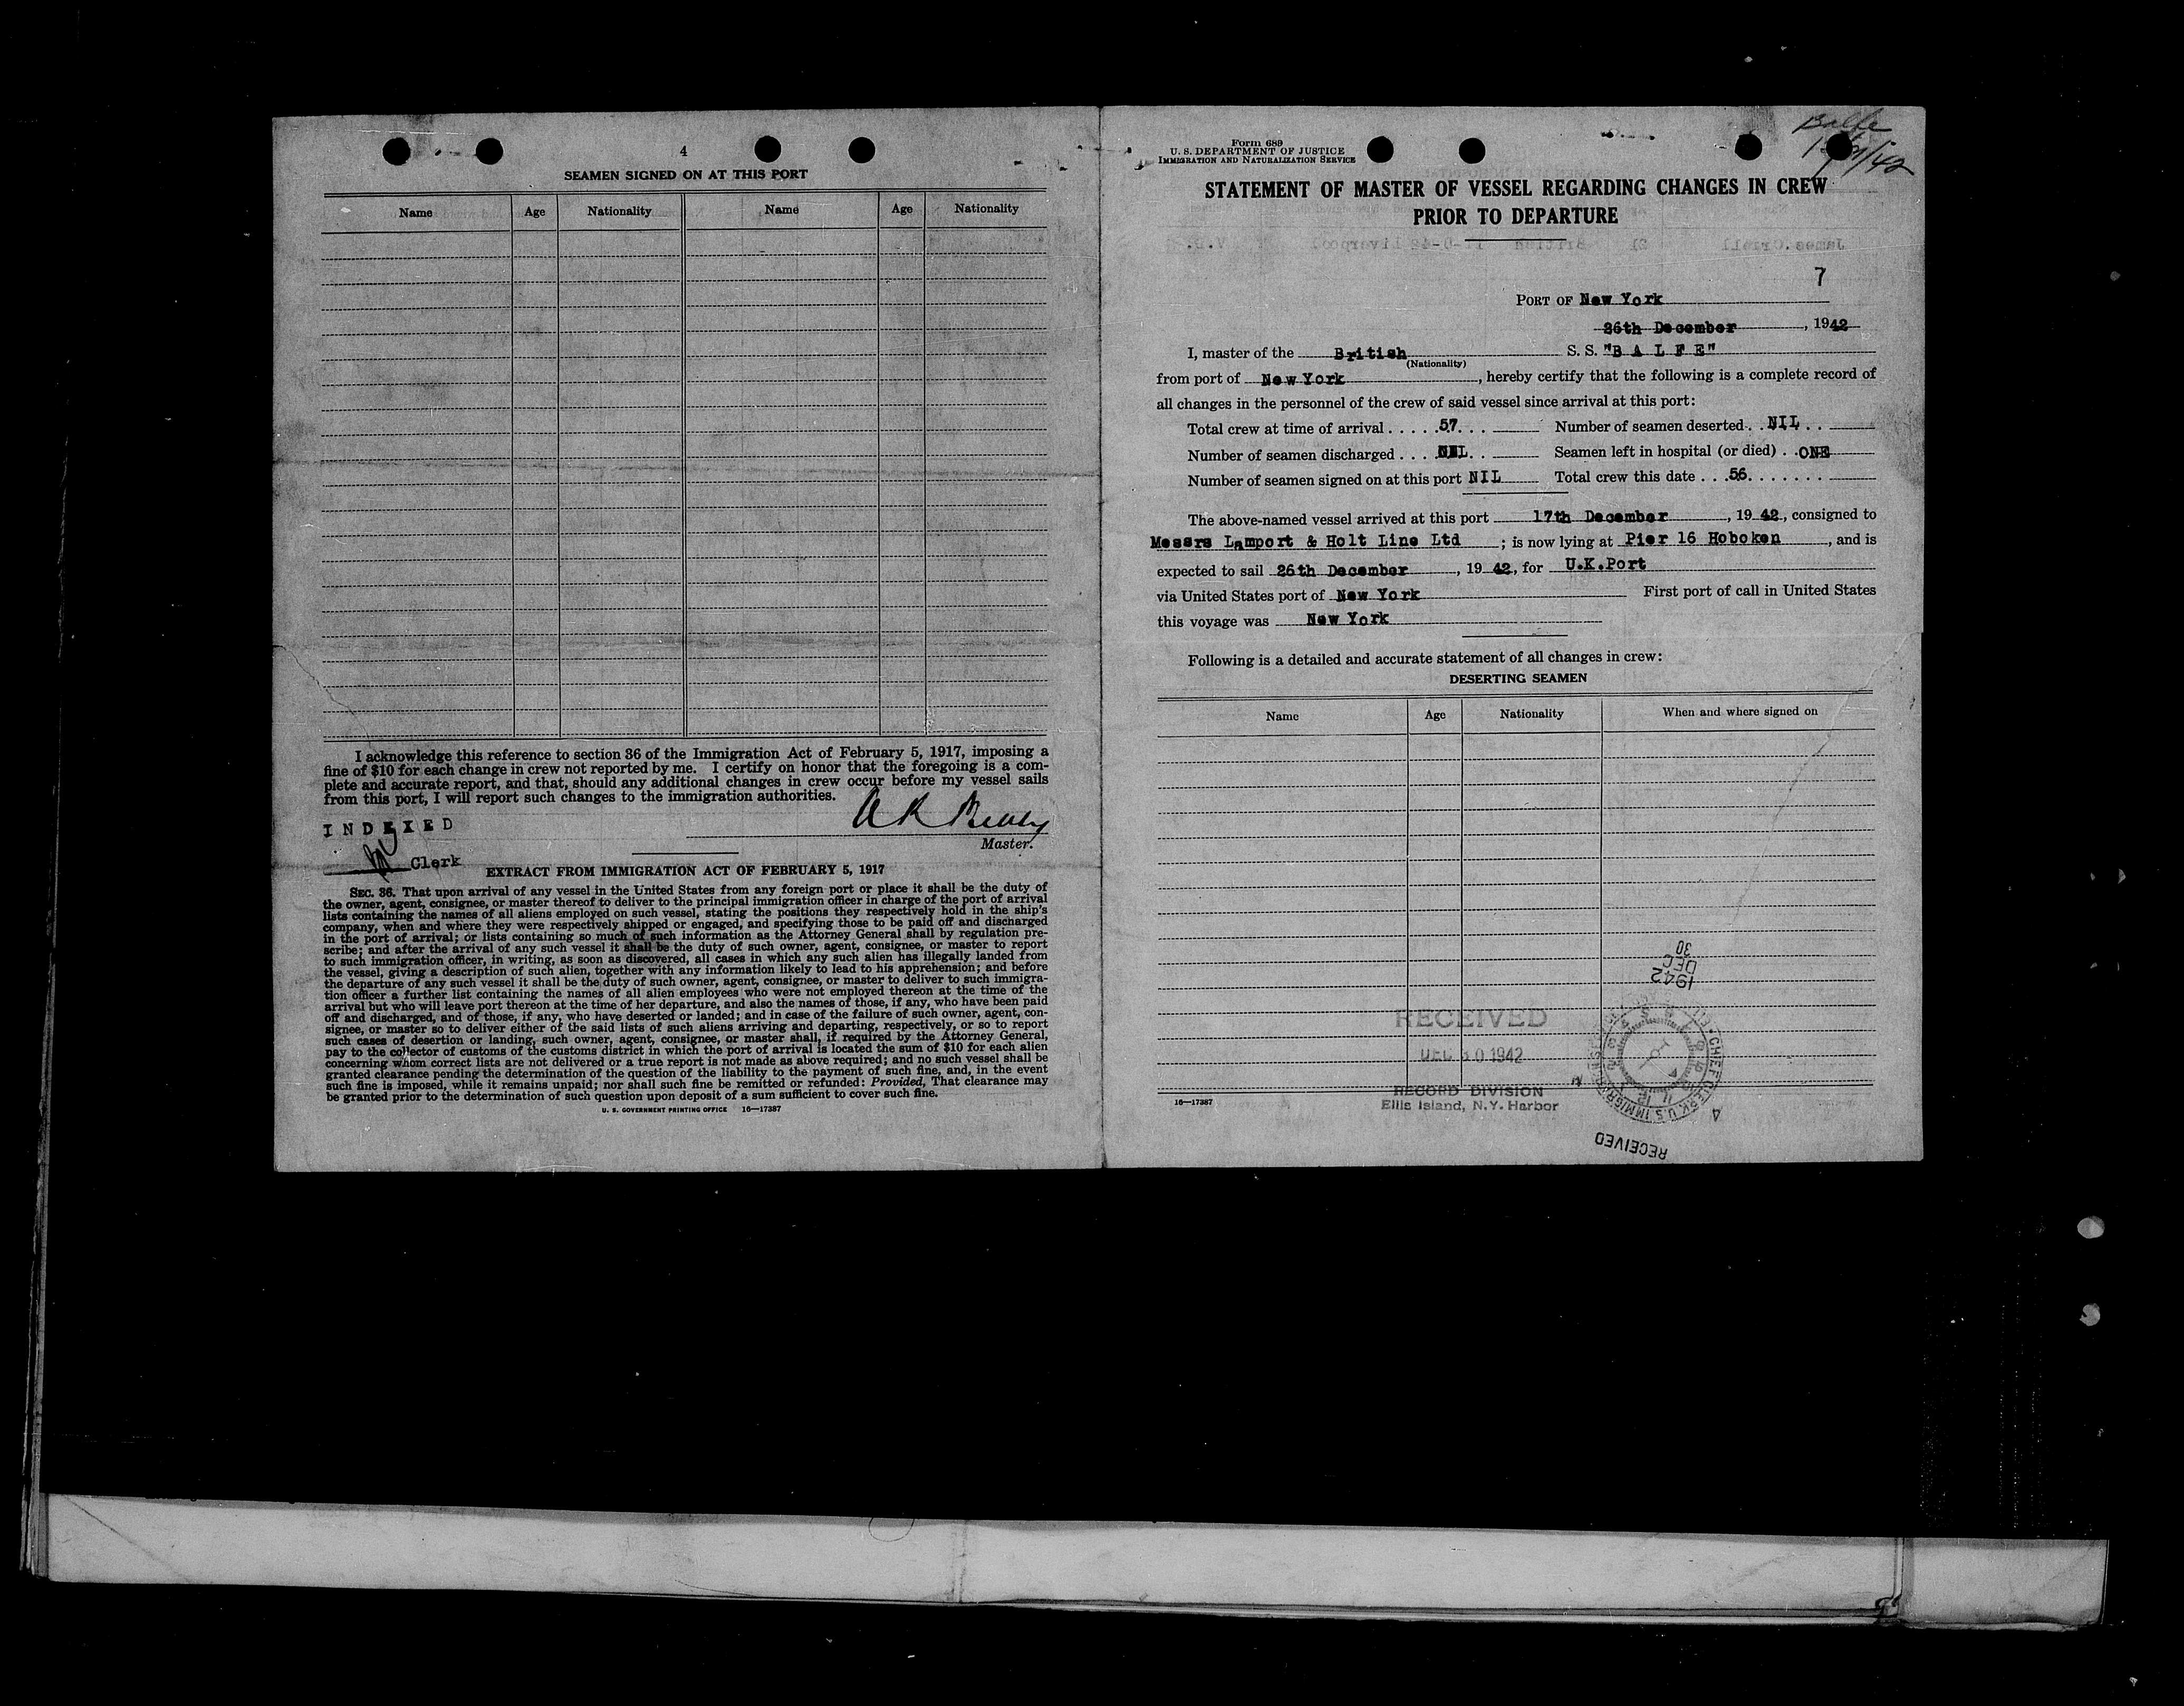 4
SEAMEN SIGNED ON AT THIS PORT
Name Age Nationality Name Age Nationality
I acknowledge this reference to section 36 of the Immigration Act of February 5, 1917, imposing a
fine of $10 for each change in crew not reported by me. I certify on honor that the foregoing is a com-
plete and accurate report, and that, should any additional changes in crew occur before my vessel sails
from this port, I will report such changes to the immigration authorities.
INDEXED
Master.
Clerk
EXTRACT FROM IMMIGRATION ACT OF FEBRUARY 5, 1917
SEC. 36. That upon arrival of any vessel in the United States from any foreign port or place it shall be the duty of
the owner, agent, consignee, or master thereof to deliver to the principal immigration officer in charge of the port of arrival
lists containing the names of all aliens employed on such vessel, stating the positions they respectively hold in the ship's
company, when and where they were respectively shipped or engaged, and specifying those to be paid off and discharged
in the port of arrival; or lists containing so much of such information as the Attorney General shall by regulation pre-
scribe; and after the arrival of any such vessel it shall be the duty of such owner, agent, consignee, or master to report
to such immigration officer, in writing, as soon as discovered, all cases in which any such alien has illegally landed from
the vessel, giving a description of such alien, together with any information likely to lead to his apprehension; and before
the departure of any such vessel it shall be the duty of such owner, agent, consignee, or master to deliver to such immigra-
tion officer a further list containing the names of all alien employees who were not employed thereon at the time of the
arrival but who will leave port thereon at the time of her departure, and also the names of those, if any, who have been paid
off and discharged, and of those, if any, who have deserted or landed; and in case of the failure of such owner, agent, con-
signee, or master so to deliver either of the said lists of such aliens arriving and departing, respectively, or so to report
such cases of desertion or landing, such owner, agent, consignee, or master shall, if required by the Attorney General,
pay to the collector of customs of the customs district in which the port of arrival is located the sum of $10 for each alien
concerning whom correct lists are not delivered or a true report is not made as above required; and no such vessel shall be
granted clearance pending the determination of the question of the liability to the payment of such fine, and, in the event
such fine is imposed, while it remains unpaid; nor shall such fine be remitted or refunded: Provided, That clearance may
be granted prior to the determination of such question upon deposit of a sum sufficient to cover such fine.
U. S. GOVERNMENT PRINTING OFFICE 16—17387
Balfe
Form 689
U. S. DEPARTMENT OF JUSTICE
IMMIGRATION AND NATURALIZATION SERVICE
STATEMENT OF MASTER OF VESSEL REGARDING CHANGES IN CREW
PRIOR TO DEPARTURE
7
PORT OF New York
26th December, 1942
I, master of the British S. S. "B A L F E"
(Nationality)
from port of New York, hereby certify that the following is a complete record of
all changes in the personnel of the crew of said vessel since arrival at this port:
Total crew at time of arrival . . . . . 57. . . Number of seamen deserted . . NIL . .
Number of seamen discharged . . . NIL. . Seamen left in hospital (or died) . .ONE
Number of seamen signed on at this port NIL Total crew this date . . .56. . . . . . .
The above-named vessel arrived at this port 17th December, 19 42, consigned to
Messrs Lamport & Holt Line Ltd ; is now lying at Pier 16 Hoboken, and is
expected to sail 26th December, 19 42, for U.K.Port
via United States port of New York First port of call in United States
this voyage was New York
Following is a detailed and accurate statement of all changes in crew:
DESERTING SEAMEN
Name Age Nationality When and where signed on
1942
DEC
30
RECEIVED
DEC 30 1942
RECORD DIVISION
Ellis Island, N.Y. Harbor
16—17387
RECEIVED